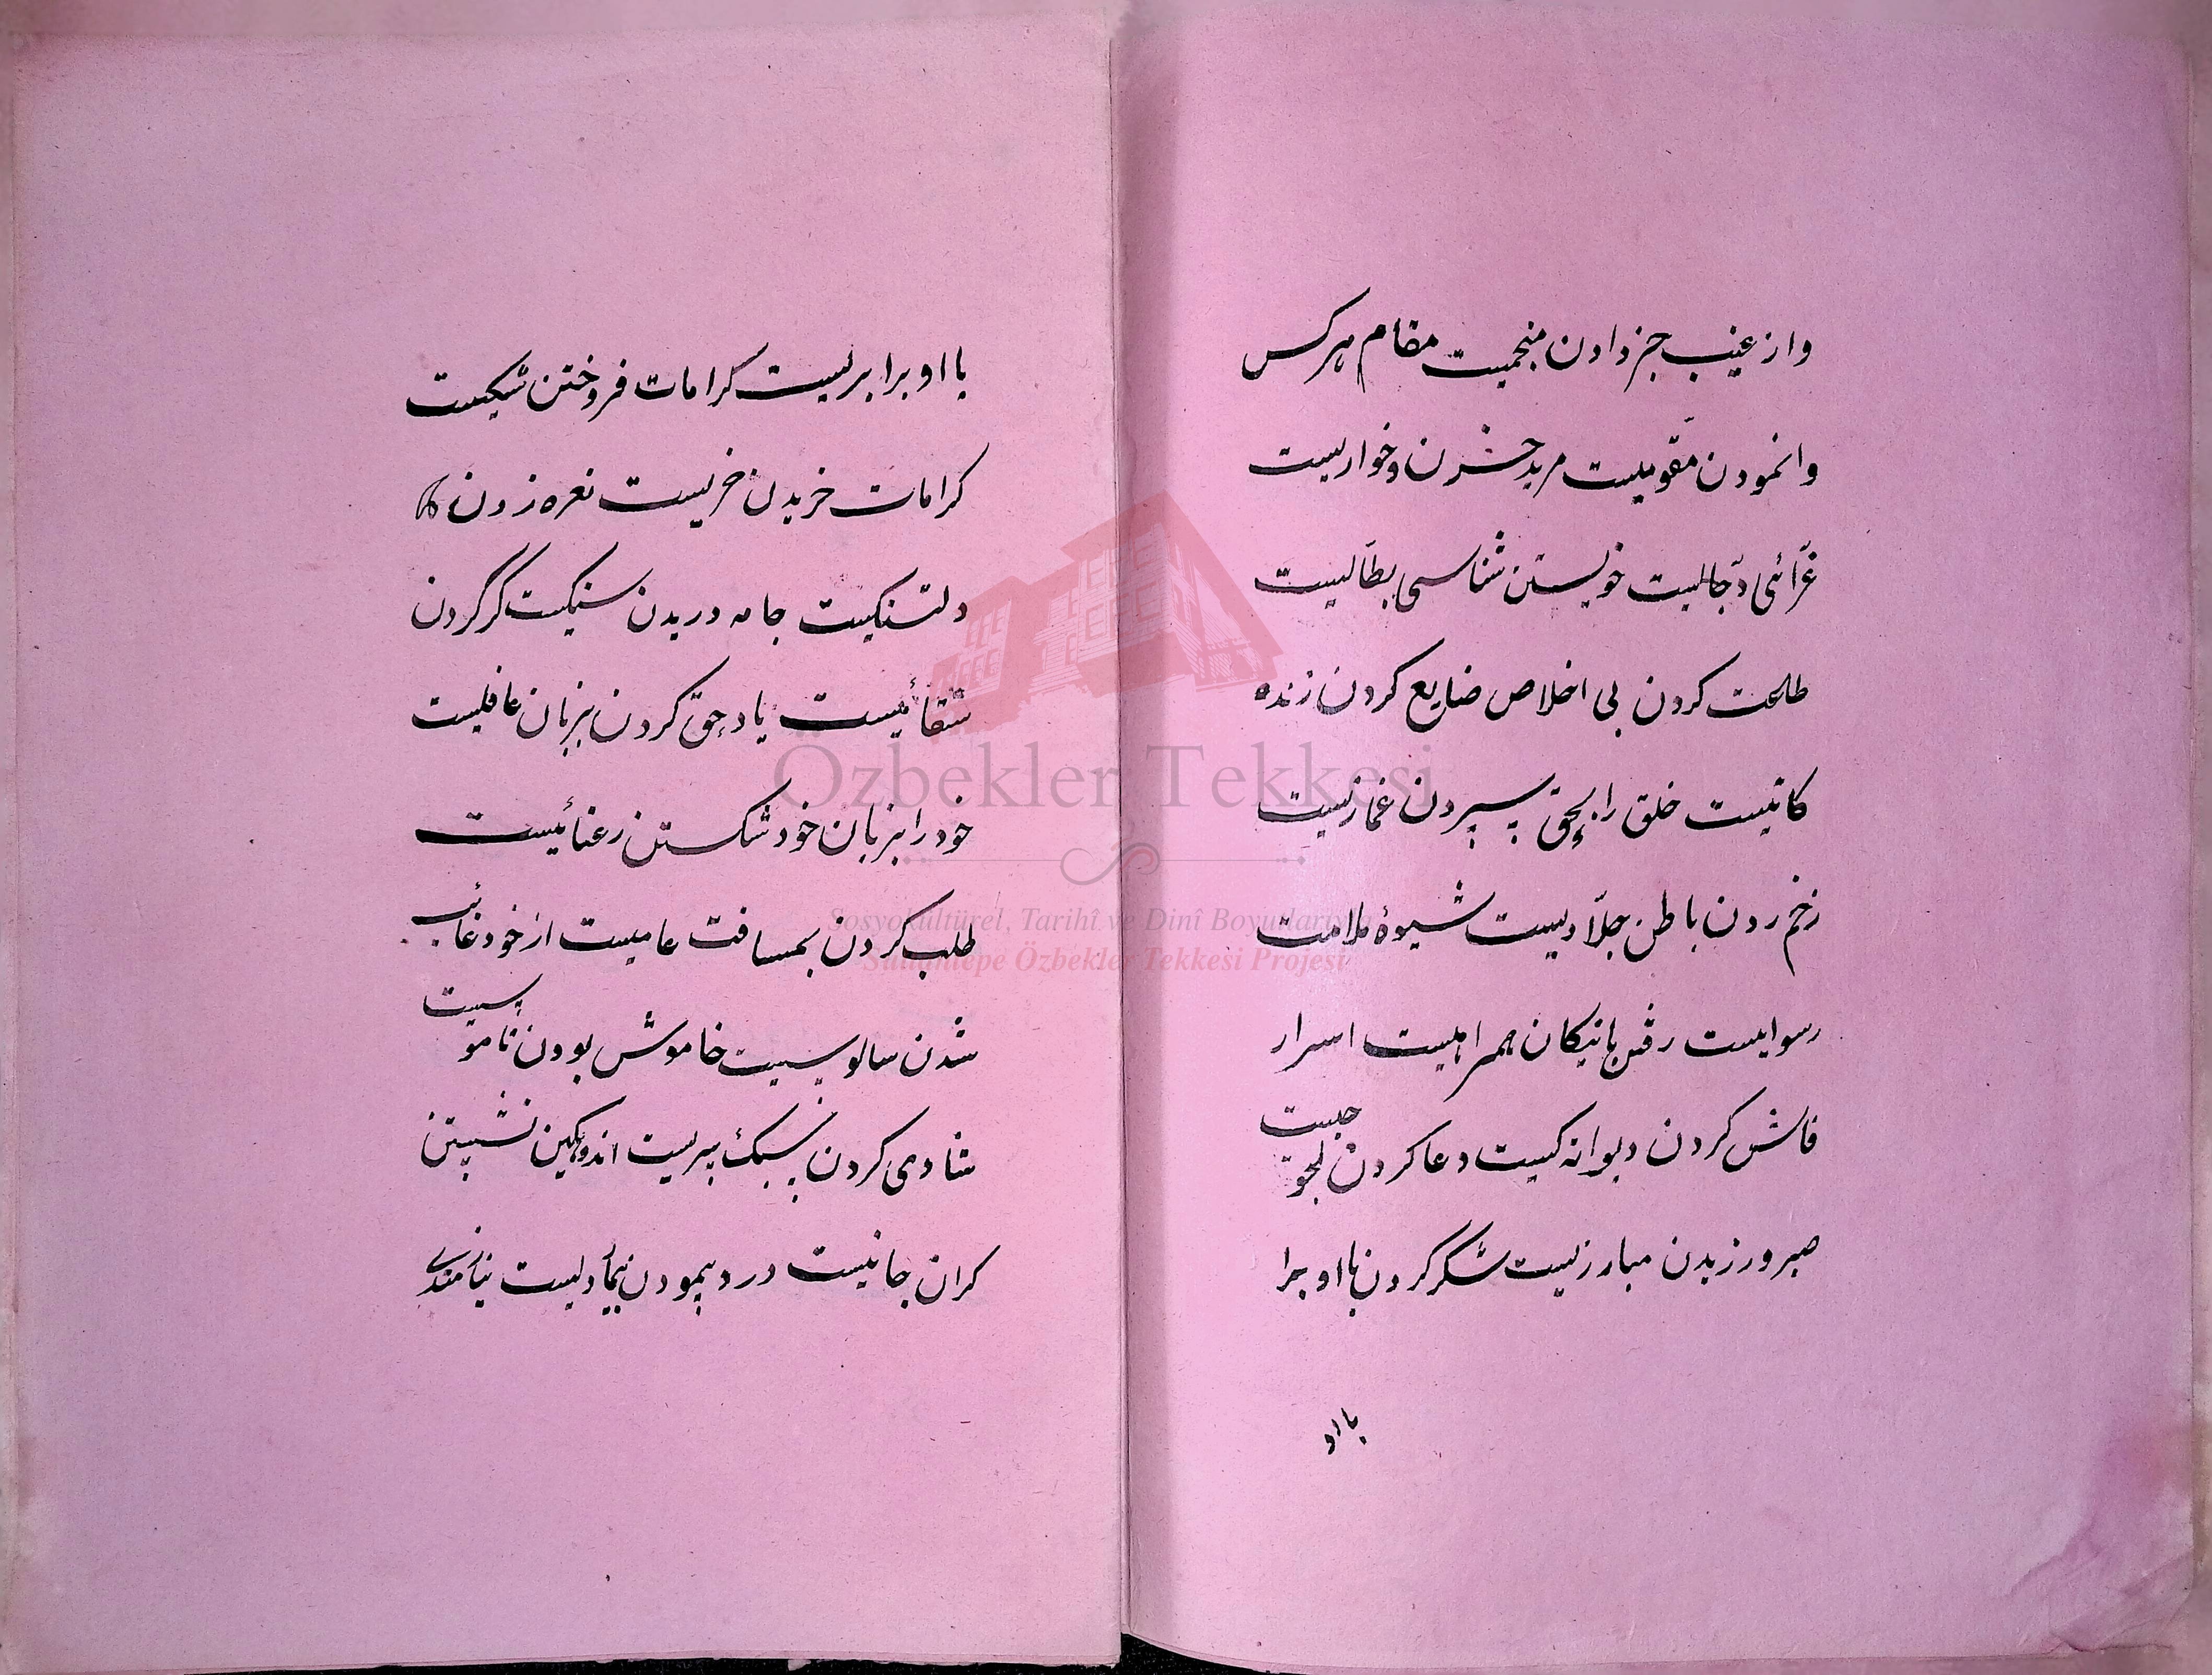 واز غیب خبر دادن منجمیست مقام هرکس
وانمودن مقومیست مرید خریدن وخواریست
غرّائی دجّالیست خویستن شناسی بطّالیست
طاعت کردن بی اخلاص ضایع کردن زنده
کانیست خلق را بحق سپردن غمازیست
زخم زدن باطن جلّادیست شیوهٔ ملامت
رسوایست رفتن بانیکان همراهیست اسرار
فاش کردن دیوانه کیست دعا کردن لجو
جیست
صبر ورزیدن مبارزیست شکر کردن با او برا
با او
با او برابریست کرامات فروختن سکیست
کرامات خریدن خریست نعره زدن
دلتنکیست جامه دریدن سنکیست کر کردن
سقائیست یاد حق کردن بزبان غافلیست
خود را بزبان خود شکستن رعنائیست
طلب کردن بمسافت عامیست از خود غائب
شدن سالوسیست خاموش بودن نامو
سیست
شادی کردن سبک سریست اندوهکین نشستن
کران جانیست درد پیمودن بیدلیست نیازمندی
Özbekler Tekkesi
Sosyokültürel, Tarihî ve Dinî Boyutlarıyla
Sultantepe Özbekler Tekkesi Projesi